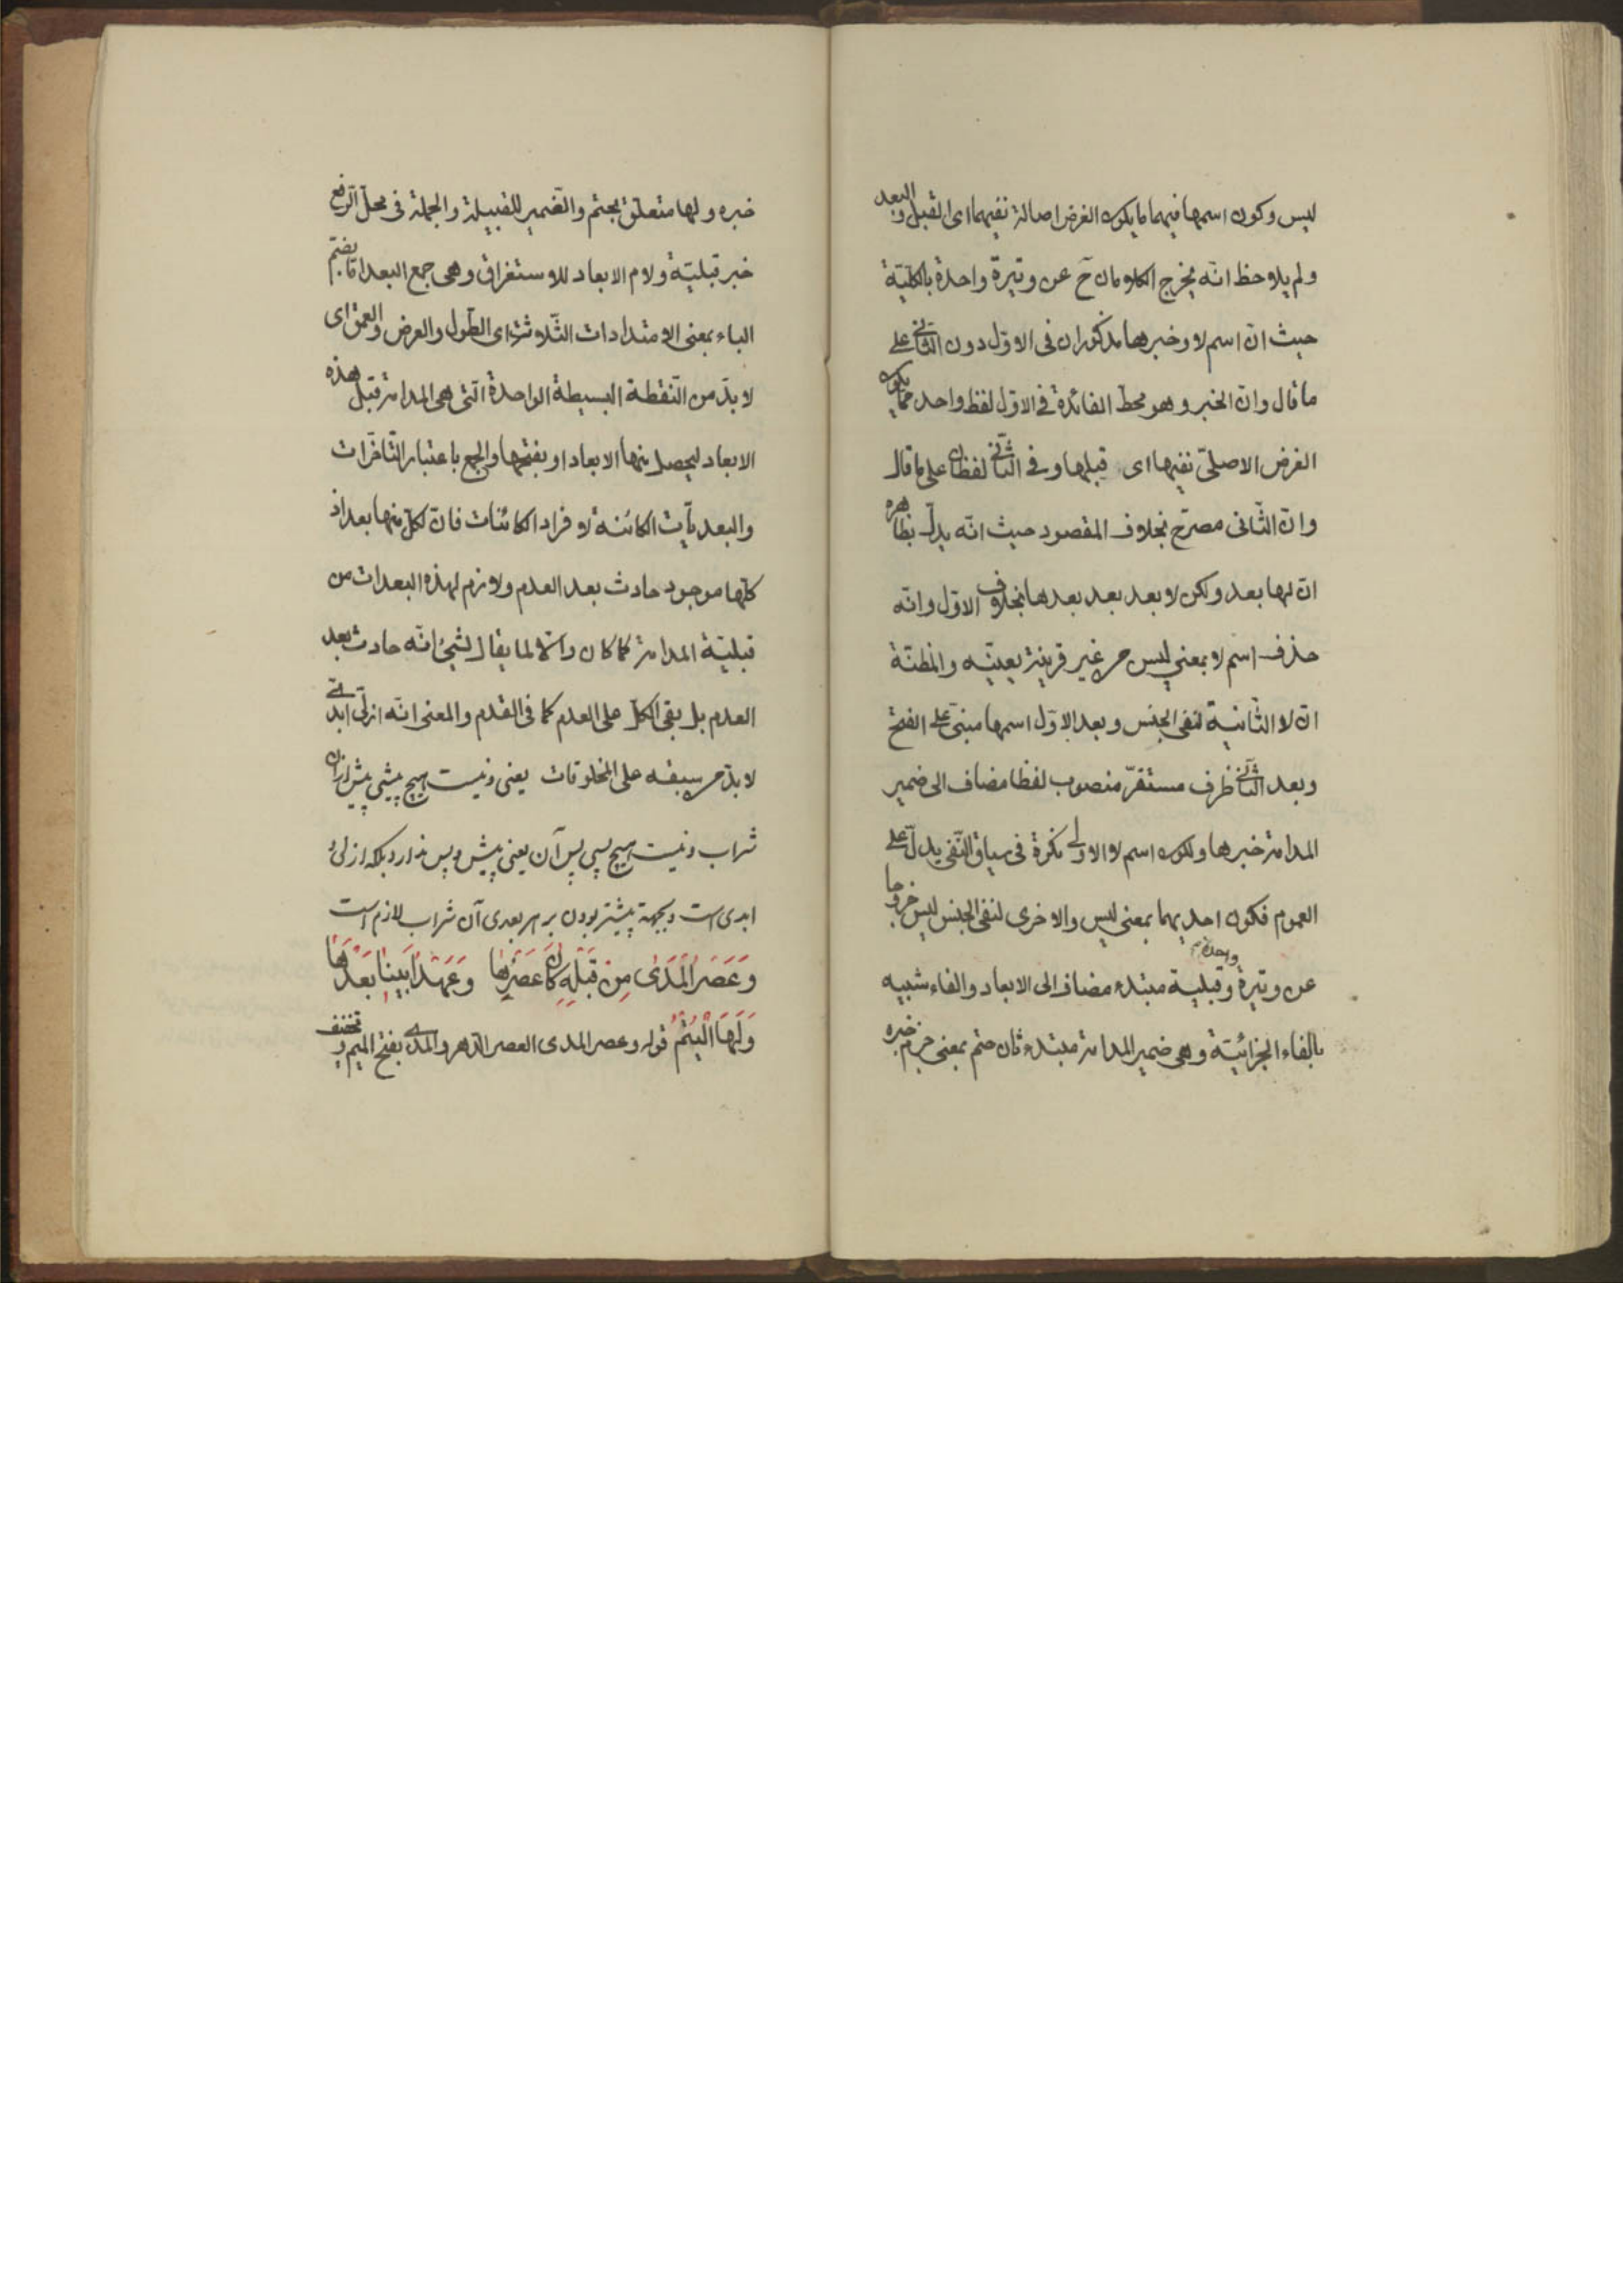 ليس وكون اسمها فيهما ما يكون الغرض اصالة نفيهما اى القبل والبعد
ولم يلاحظ انّه يخرج الكلامان ح عن وتيرة واحدة بالكليّة
حيث انّ اسم لا وخبرها مذكوران فى الاوّل دون الثّانى على
ما قال وانّ الخبر وهو محطّ الفائدة فى الاوّل لفظ واحد ممّا يكون
الغرض الاصلىّ نفيها اى قبلها وفى الثّانى لفظان على ما قال
وانّ الثّانى مصرّح بخلاف المقصود حيث انّه يدلّ بظاهره
انّ لها بعد ولكن لا بعد بعد بعدها بخلاف الاوّل وانّه
حذف اسم لا بمعنى ليس من غير قرينة يعيّنه والمظنّة
انّ لا الثّانية لنفى الجنس وبعد الاوّل اسمها مبنىّ على الفتح
وبعد الثّانى ظرف مستقرّ منصوب لفظا مضاف الى ضمير
المدامة خبرها ولكون اسم لا الاولى نكرة فى سياق النّفى يدلّ على
العموم فكون احديهما بمعنى ليس والاخرى لنفى الجنس ليس خروجا
عن وتيرة واحدة وقبلية مبتدء مضاف الى الابعاد والفاء شبيه
بالفاء الجزائيّة وهى ضمير المدامة مبتدء ثان حتم بمعنى جزم خبره
خبره ولها متعلّق بحتم والضمير للقبيلة والجملة فى محلّ الرّفع
خبر قبليّة ولام الابعاد للاستغراق وهى جمع البعد امّا بضمّ
الباء بمعنى الامتدادات الثّلاثة اى الطّول والعرض والعمق اى
لا بدّ من النّقطة البسيطة الواحدة الّتى هى المدامة قبل هذه
الابعاد ليحصل منها الابعاد او بفتحها والجمع باعتبار التّاخّرات
والبعديّات الكائنة لافراد الكائنات فانّ لكلّ منها بعد اذ
كلّها موجود حادث بعد العدم ولازم لهذه البعدات من
قبليّة المدامة كما كان والّا لما يقال لشىء انّه حادث بعد
العدم بل بقى الكلّ على العدم كما فى القدم والمعنى انّه ازلىّ ابدىّ
لا بدّ من سبقه على المخلوقات يعنى ونيست هيچ پيشى پيش ازان
شراب ونيست هيچ پسى پس آن يعنى پيش وپس ندارد بلكه ازلى و
ابدى است وبجهة پيشتر بودن بر هر بعدى آن شراب لازم است
وَعَصْرُ الْمَدٰى مِنْ قَبْلِهِ كَانَ عَصْرُهَا وَعَهْدُ اَبِينَا بَعْدَهَا
وَلَهَا الْيُتْمُ قوله وعصر المدى العصر الدّهر والمدى بفتح الميم وتخفيف